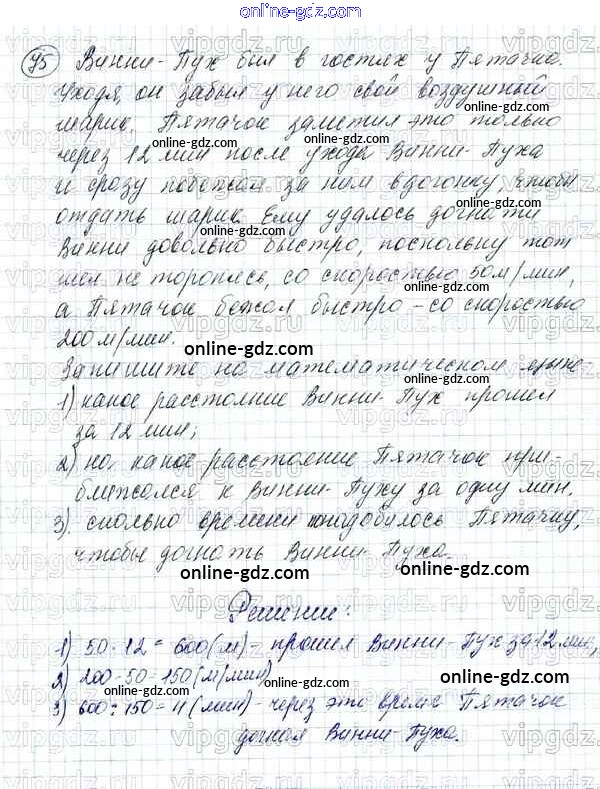 online-gdz.com
95 Винни-Пух был в гостях у Пятачка.
Уходя, он забыл у него свой воздушный
online-gdz.com online-gdz.com
шарик. Пятачок заметил это только
через 12 мин после ухода Винни-Пуха
и сразу побежал за ним вдогонку, чтобы
online-gdz.com online-gdz.com
отдать шарик. Ему удалось догнать
Винни довольно быстро, поскольку тот
online-gdz.com online-gdz.com
шел не торопясь, со скоростью 50 м/мин,
а Пятачок бежал быстро - со скоростью
200 м/мин.
online-gdz.com
Запишите на математическом языке
online-gdz.com online-gdz.com
1) какое расстояние Винни-Пух прошел
за 12 мин;
online-gdz.com online-gdz.com
2) на какое расстояние Пятачок при-
ближался к Винни-Пуху за одну мин.
online-gdz.com online-gdz.com
3) сколько времени понадобилось Пятачку,
чтобы догнать Винни-Пуха.
online-gdz.com online-gdz.com
Решение:
online-gdz.com online-gdz.com
1) 50 · 12 = 600 (м) - прошел Винни-Пух за 12 мин,
2) 200 - 50 = 150 (м/мин)
online-gdz.com online-gdz.com
3) 600 : 150 = 4 (мин) - через это время Пятачок
догнал Винни-Пуха.
online-gdz.com online-gdz.com